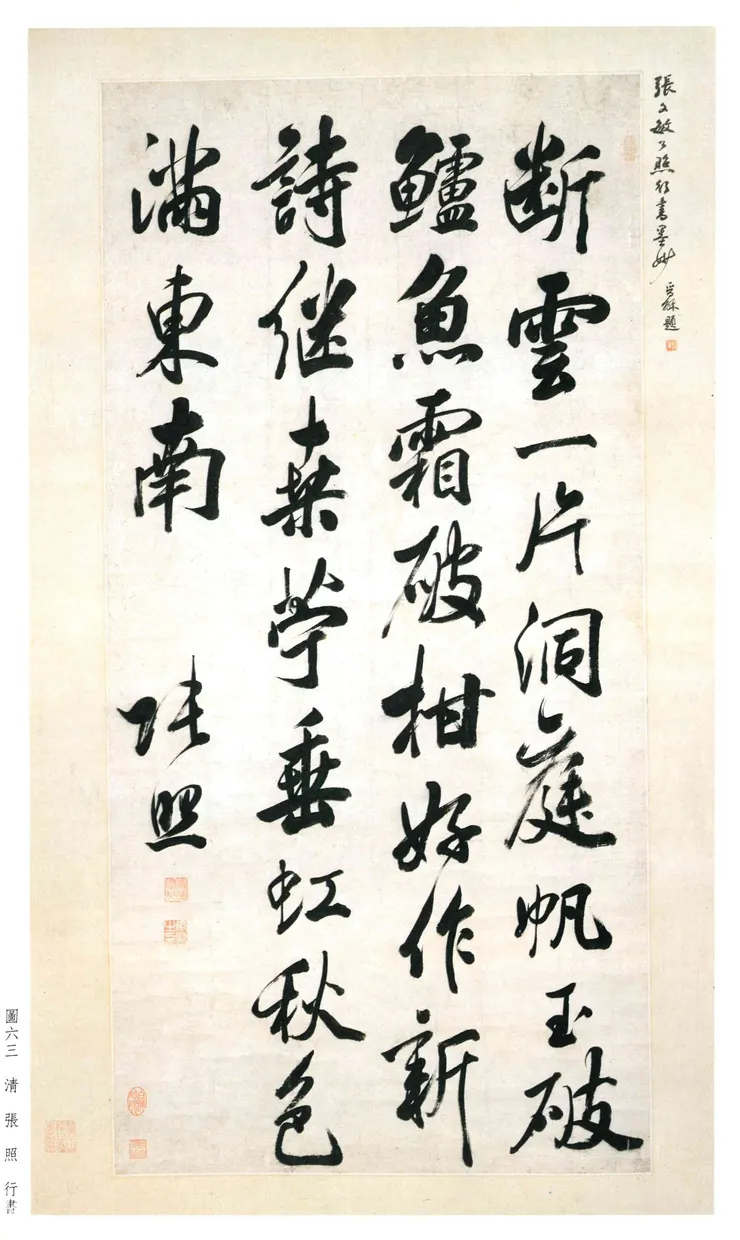 張文敏公照行書墨妙
題
断雲一片洞庭帆玉破
鱸魚霜破柑好作新
詩継桒苧垂虹秋色
滿東南
張照
圖六三 清 張 照 行書